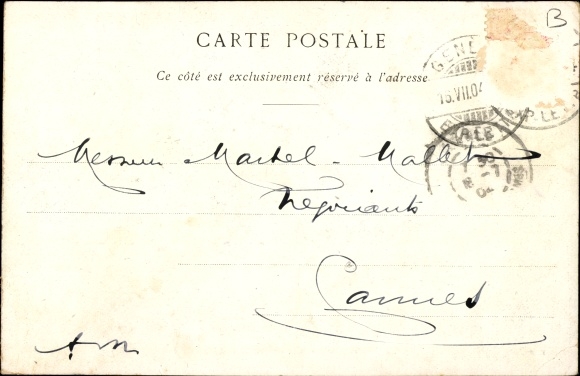 B
CARTE POSTALE
Ce côté est exclusivement réservé à l'adresse
GENÈ
15.VII.04
EXP. LE
Messieurs Martel - Mallet
Négociants
Cannes
A.M